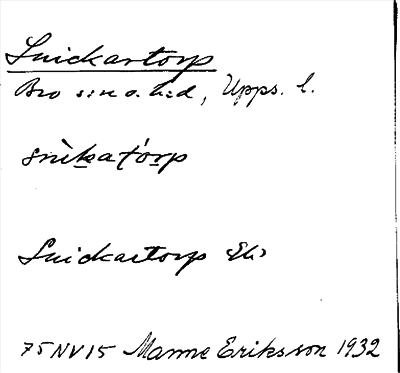 Snickartorp
Bro sn o. hd, Upps. l.
snìkatórp
Snickartorp Ek
75NV15 Manne Eriksson 1932